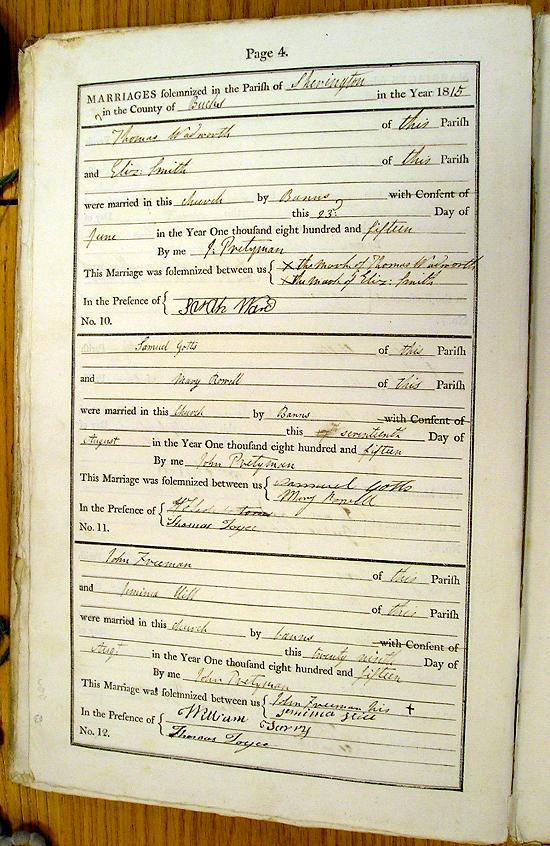 Page 4.
MARRIAGES solemnized in the Parish of Sherington
in the County of Bucks in the Year 1815
Thomas Wadworth of this Parish
and Eliz: Smith of this Parish
were married in this church by Banns with Consent of
this 23 Day of
June in the Year One thousand eight hundred and fifteen
By me J. Pretyman
This Marriage was solemnized between us X the mark of Thomas Wadworth
X the mark of Eliz: Smith
In the Presence of Ward
No. 10.
Samuel Gotts of this Parish
and Mary Rowell of this Parish
were married in this church by Banns with Consent of
this seventeenth Day of
August in the Year One thousand eight hundred and fifteen
By me John Pretyman
This Marriage was solemnized between us Samuel Gotts
Mary Rowell
In the Presence of
Thomas Joyce
No. 11.
John Freeman of this Parish
and Jemima Hill of this Parish
were married in this church by banns with Consent of
this twenty ninth Day of
Augt in the Year One thousand eight hundred and fifteen
By me John Pretyman
This Marriage was solemnized between us John Freeman his +
Jemima
In the Presence of William
Thomas Joyce
No. 12.